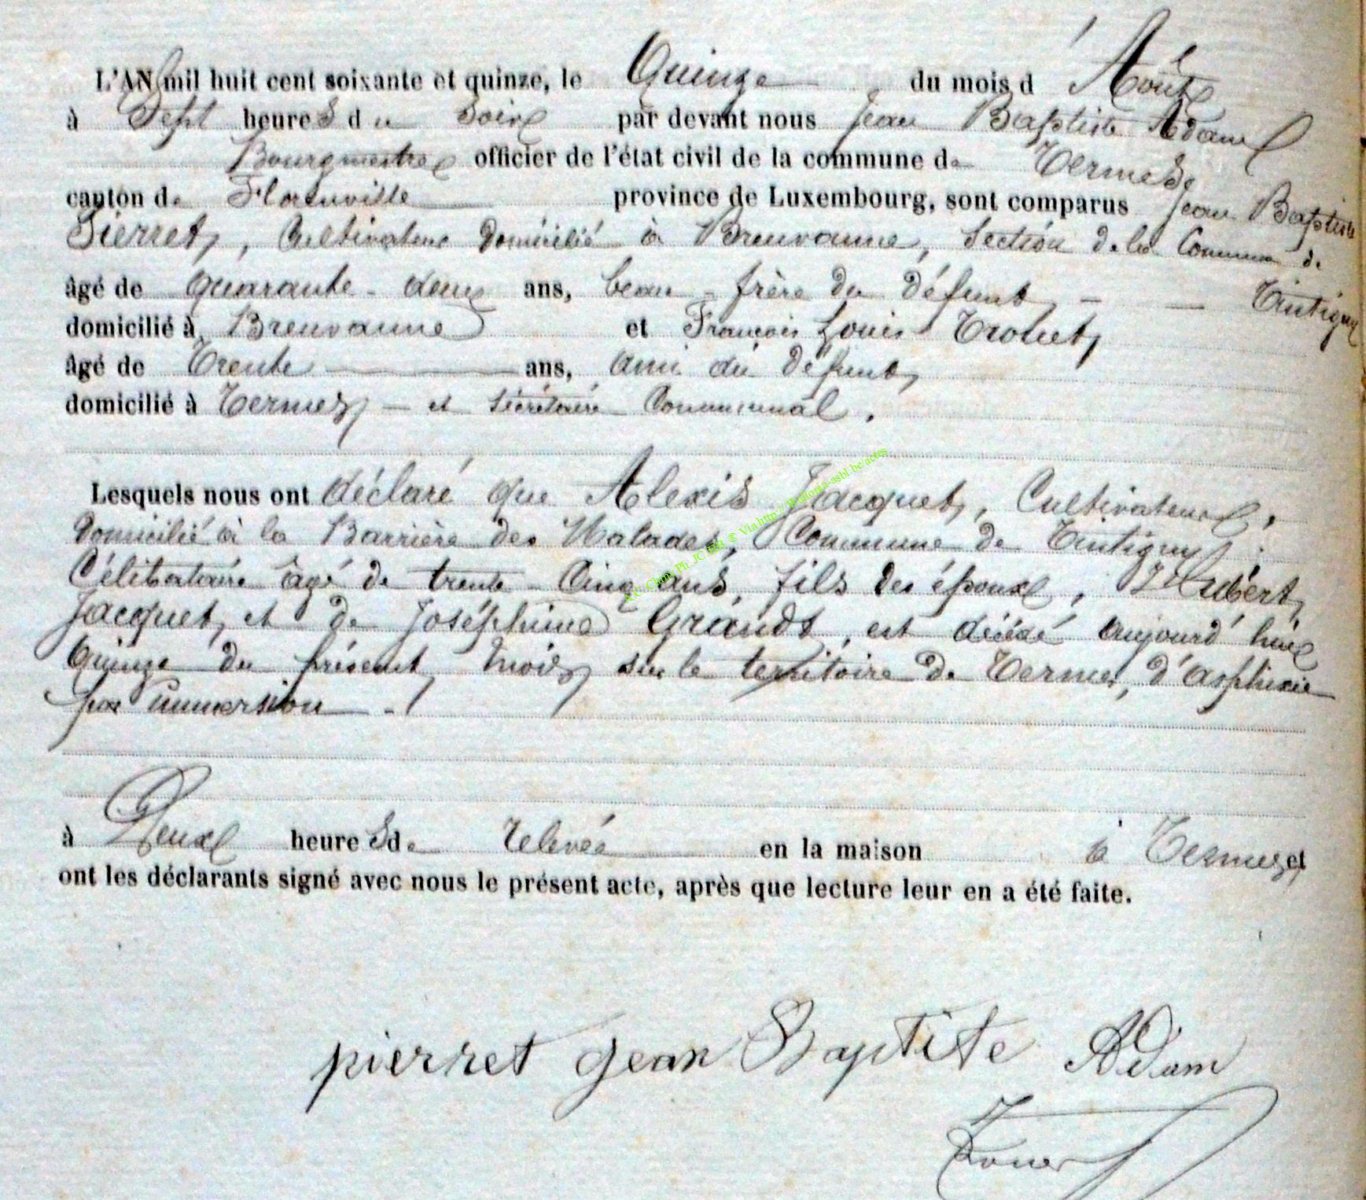 L'AN mil huit cent soixante et quinze, le Quinze du mois d'Août
à Sept heures du Soir par devant nous Jean Baptiste Adam
Bourgmestre officier de l'état civil de la commune de Termes
canton de Florenville province de Luxembourg, sont comparus Jean Baptiste
Pierret, Cultivateur domicilié à Breuvanne, Section de la Commune de
Tintigny
âgé de quarante-deux ans, beau-frère du défunt
domicilié à Breuvanne et François Louis
âgé de Trente ans, ami du défunt,
domicilié à Termes, et sécrétaire Communal.
Lesquels nous ont déclaré que Alexis Jacquet, Cultivateur,
domicilié à la Barrière des Malades, Commune de Tintigny,
Célibataire âgé de trente-cinq ans, fils des époux, Hubert
Jacquet, et de Joséphine Grandt, est décédé aujourd'hui
quinze du présent mois sur le territoire de Termes, d'asphixie
par immersion
à Deux heures de relevée en la maison à Termes et
ont les déclarants signé avec nous le présent acte, après que lecture leur en a été faite.
pierret jean Baptite Adam